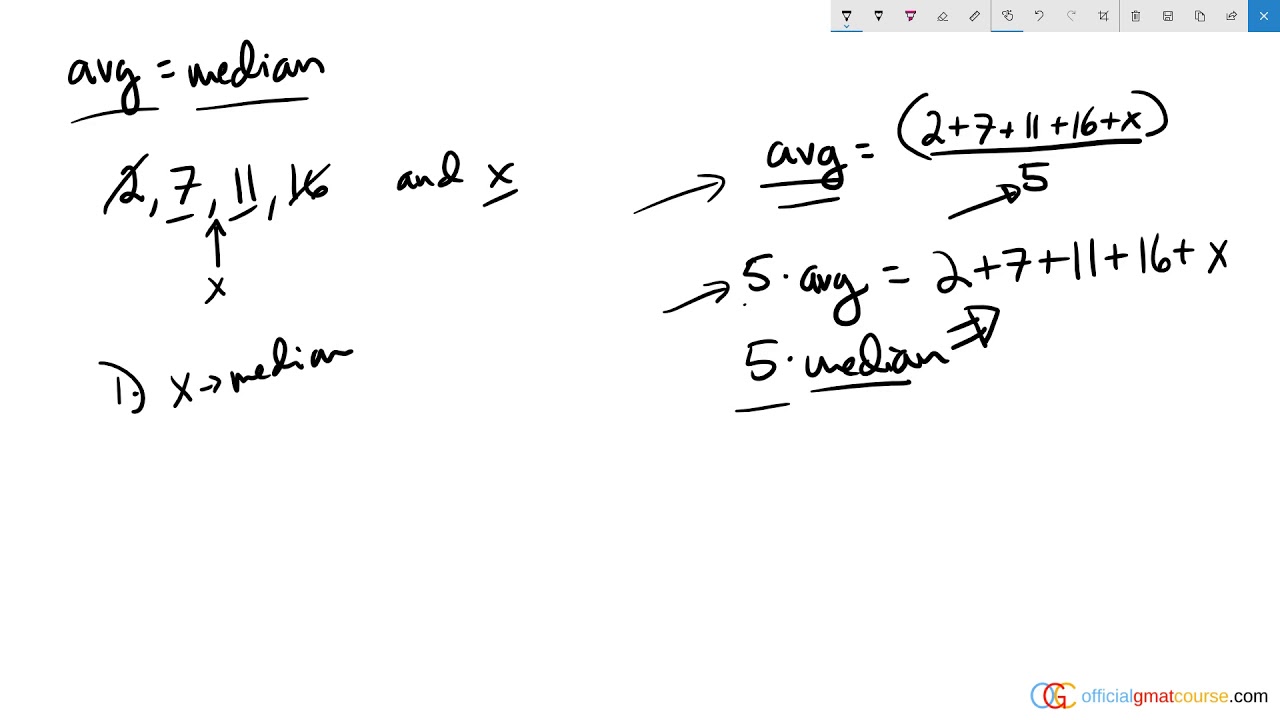 avg = median
2, 7, 11, 16 and x
x
1.) x → median
avg = (2+7+11+16+x)
5
5 · avg = 2+7+11+16+x
5 · median ⇒
OGC officialgmatcourse.com